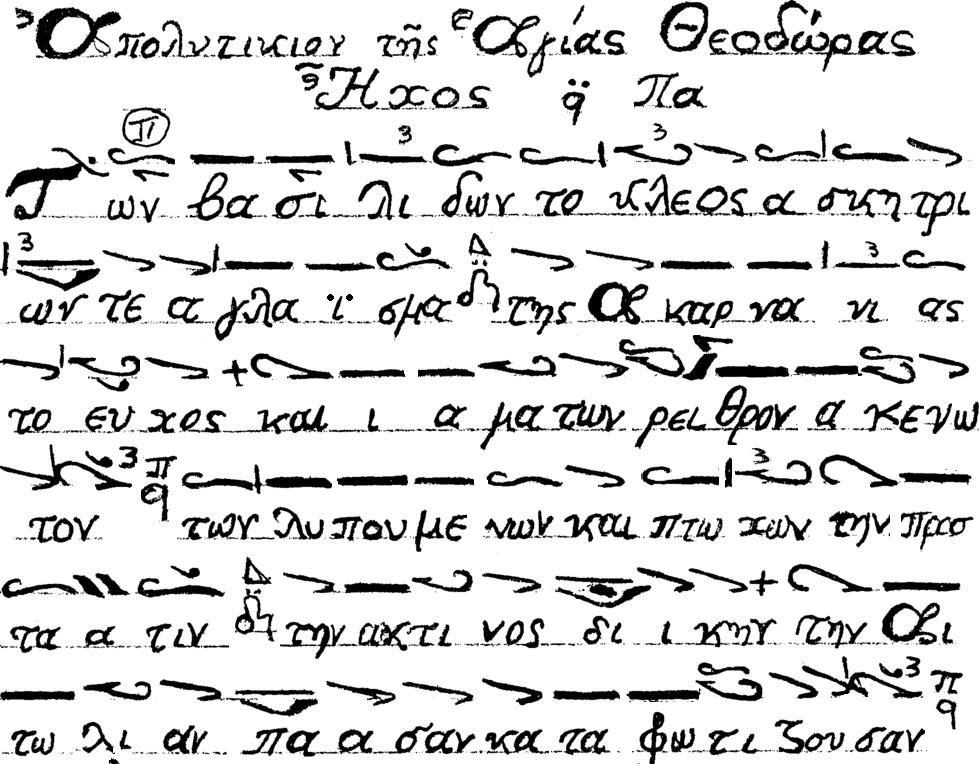 Απολυτικιον τῆς Ἁγίας Θεοδώρας
Ἦχος q̈ Πα
Των βα σι λι δων το κλεος α σκη τρι
ων τε α γλα ϊ σμα της Α καρ να νι ας
το ευ χος και ι α μα των ρει θρον α κε νω
τον των λυ που με νων και πτω χων την προσ
τα α τιν την ακτι νος δι ι κην την Αι
τω λι άν πα α σαν κα τα φω τι ζου σαν